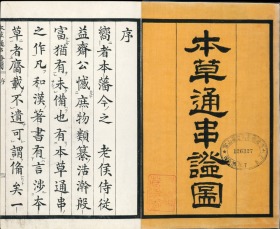 本草通串證圖
序
嚮者本藩今之 老侯侍従
益齋公憾庶物類纂浩澣殷
富猶有未備也有本草通串
之作凡和漢著書有言渉本
草者麕載不遺可謂備矣一